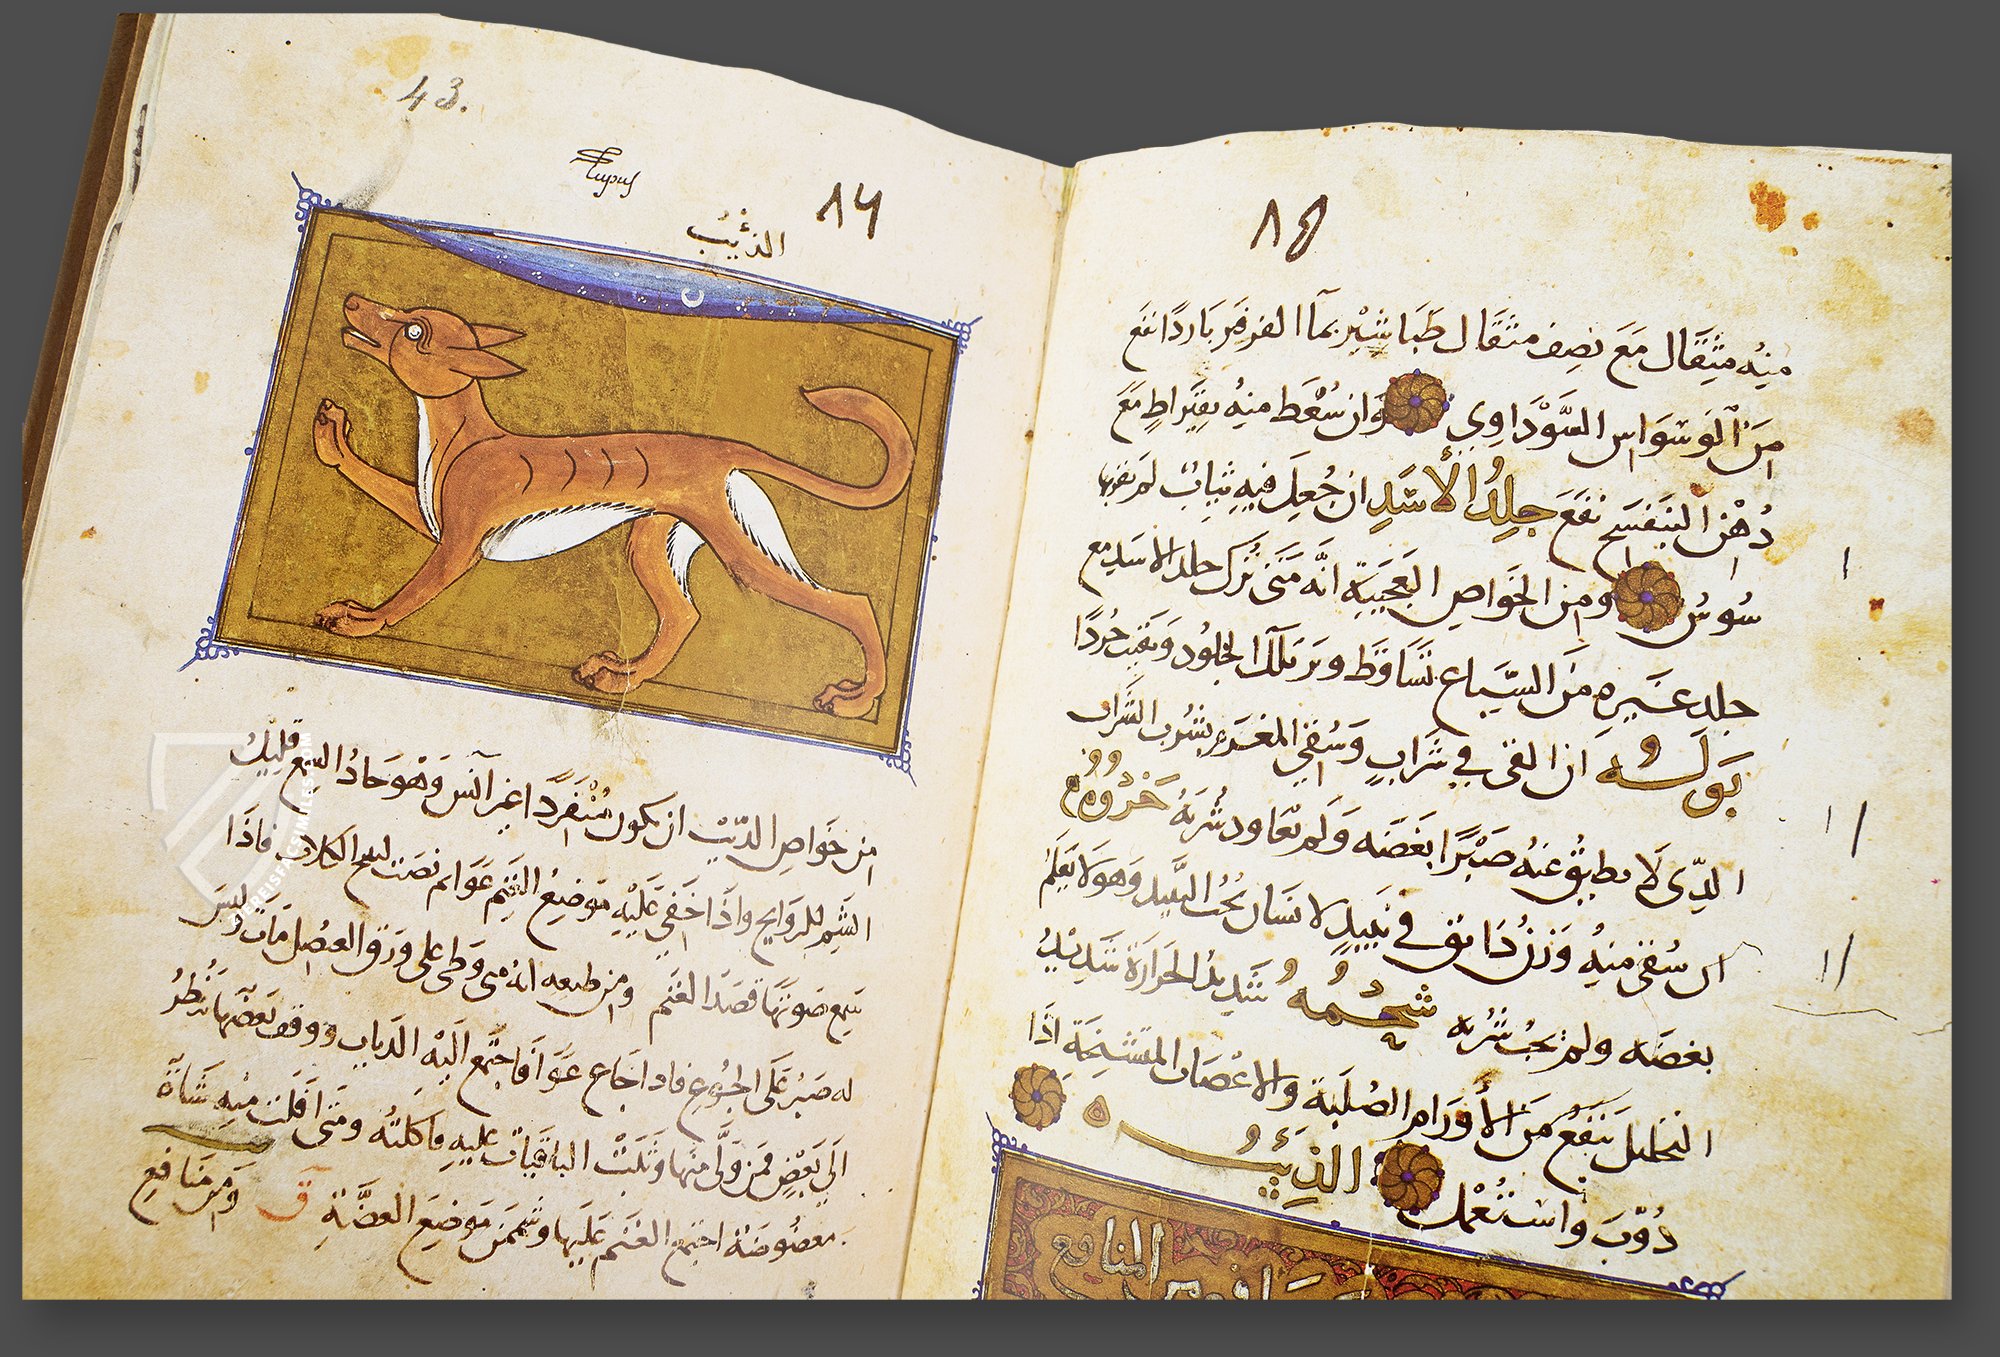 18
منه مثقال مع نصف مثقال طباشير بماء الفرفير باردا نفع
من الوسواس السوداوي وان سعط منه بقيراط مع
دهن البنفسج نفع جلد الأسد ان جعل فيه ثياب لم يقربها
سوس ومن الخواص العجيبة انه متى ترك جلد الاسد مع
جلد غيره من السباع تساقط وبر تلك الجلود وبقيت جردا
بوله ان القي في شراب وسقي المغرم بشرب الشراب
الذي لا يطيق عنه صبرا بغضه ولم يعاود شربه خروه
ان سقي منه وزن دانق في نبيذ لانسان يحب النبيذ وهو لا يعلم
بغضه ولم يحب شربه شحمه شديد الحرارة شديد
التحليل ينفع من الأورام الصلبة والاعصاب المتشنجة اذا
دوب واستعمل الذئب
المنافع
43.
Lupus
14
الذئيب
من خواص الذيب ان يكون منفردا غير آنس وهو حاد السمع قليل
الشم للروايح واذا خفي عليه موضع الغنم عوا ثم نصت لنبح الكلاب فاذا
سمع صوتها قصد الغنم ومن طبعه انه متى وطى على ورق العنصل مات وليس
له صبر على الجوع فاذا جاع عوا فاجتمع اليه الدياب ووقف بعضها ينظر
الى بعض فمن ولى منها وثبت الباقيات عليه فاكلته ومتى افلتت منه شاة
معضوضة اجتمع الغنم عليها وشممن موضع العضة ومن منافع